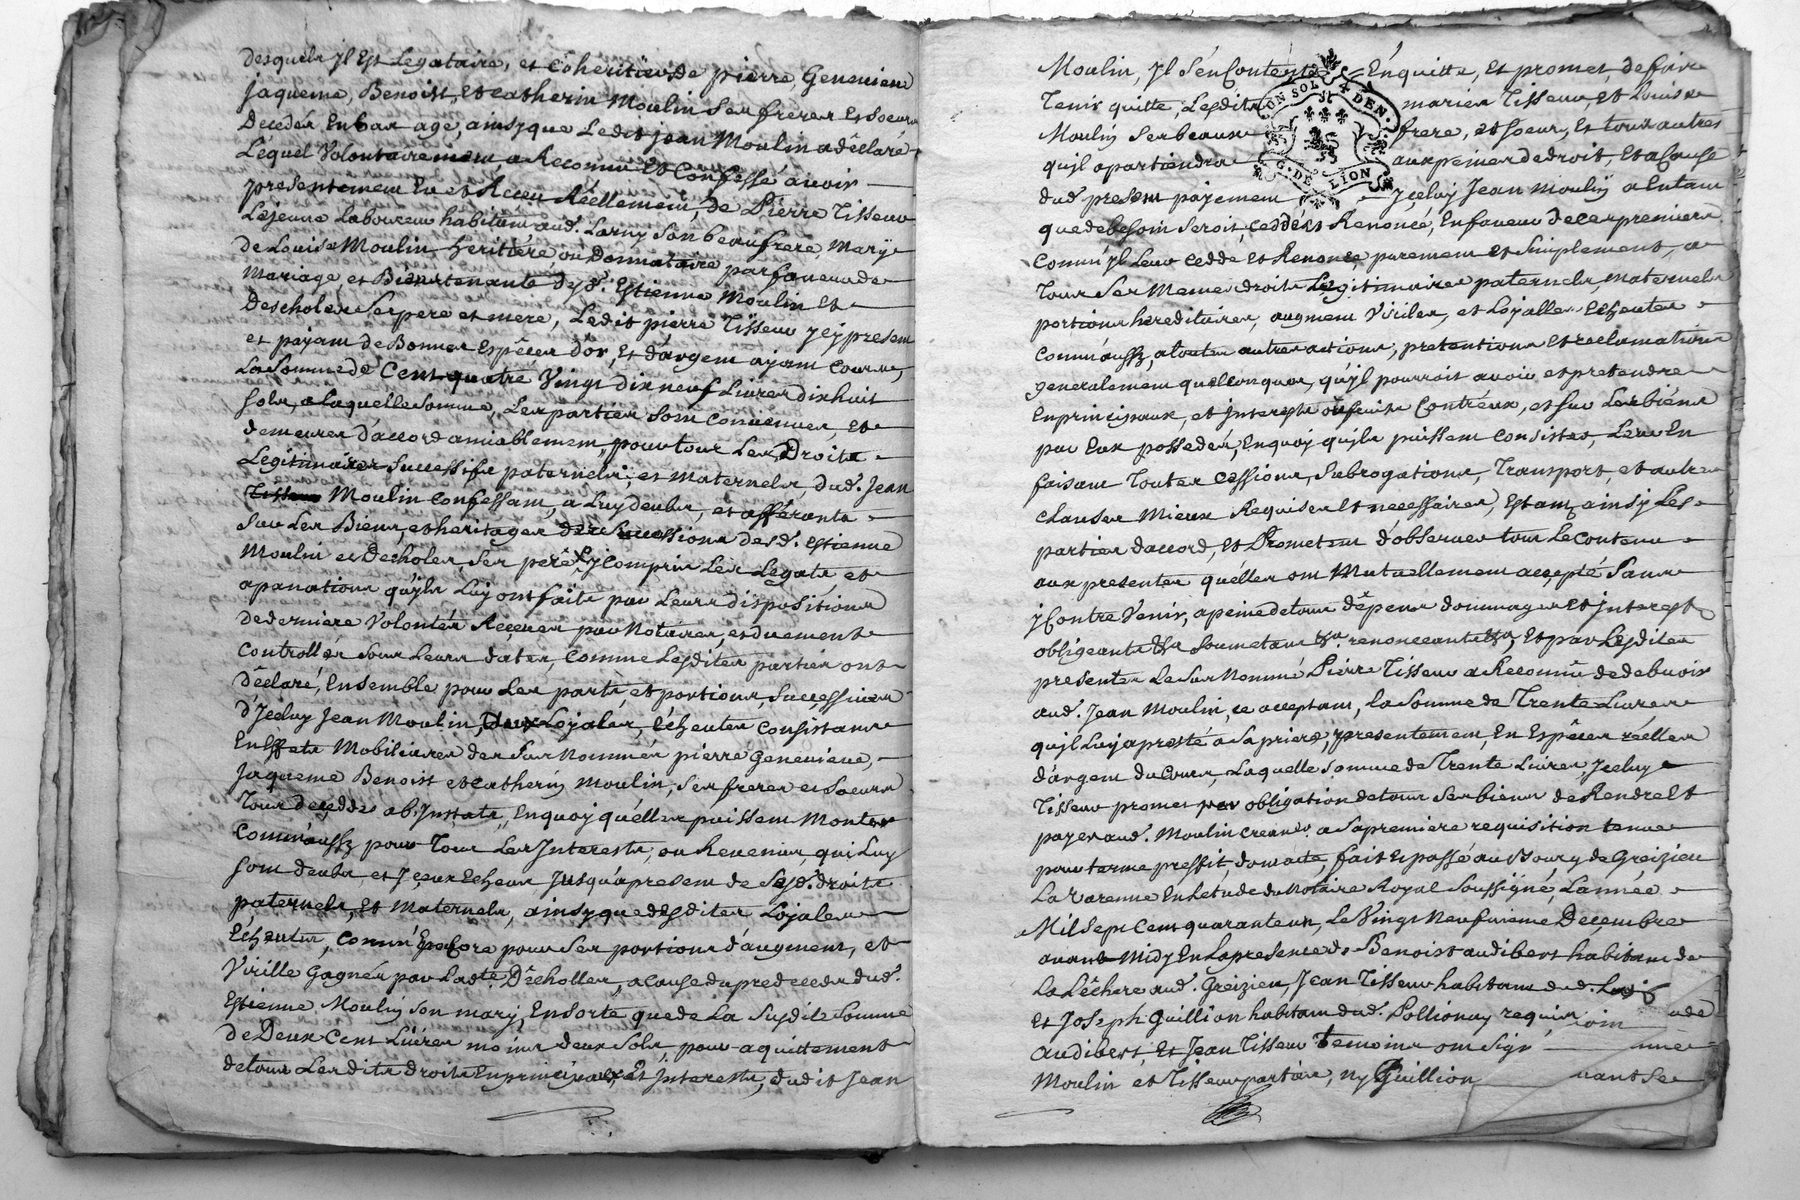 desquels Jl Est Legataire, et Coheritier de pierre, Genevieve
jaqueme, Benoist, et catherin Moulin ses freres et soeurs
Decedés En bas age, ainsy que Ledit jean Moulin a déclaré
Lequel Volontairement, a Reconnu Et Confessé avoir
presentement Eu et Receu Réellement, de Pierre Tisseur
Lejeune Laboureur habitant aud. Larny son beaufrere, mary
de Louise Moulin heritiere, ou Donnataire par faveur de
Mariage, et Bientenante desd. Estienne Moulin et
Descholes ses pere et mere, Ledit pierre Tisseur jcy present
et payant de Bonnes Espéces d'or, Et d'argent ayant Cours,
La Somme de Cent quatre Vingt dix neuf Livres dixhuit
sols, a Laquelle Somme, Les parties sont convenues et
demeurés d'accord amiablement, pour tous Les Droits
Legitimaires Successifs paternels, et Maternels, dud. Jean
Moulin Confessant, a Luy deubs, et afférants
Sur Les Biens, et heritages des Successions desd. Estienne
Moulin et Descholes, ses pere & jcompris Les Legats et
apanations qu'jls Luy ont faits par Leurs dispositions
de derniere Volontés Receues par Notaires, et duement
Controllés sous Leurs dates, Comme Lesdites parties ont
déclaré, Ensemble pour Les parts, et portions, Successives
d'Jceluy Jean Moulin, Loyales, Echeutes Consistants
En Effets Mobiliaires des Sus Nommés pierre Genevieve,
Jaqueme Benoist et catherin Moulin, Ses freres et Soeurs
Tous decedés ab Jntestats, En quoy qu'elles puissent Monter
Comm'aussy pour Tous Les Jnterests, ou Revenus, qui Luy
sont deubs, et Jceux Echeus Jusqu'a present de Sesd. droits
paternels, Et Maternels, ainsy que desdites Loyales
Echeutes, Comm'Encore pour Ses portions d'augment, et
Virille Gagnés par Ladte. Décholles, a Cause du predecedes dud.
Estienne Moulin son mary, En sorte que de La Susdite Somme
de Deux Cent Livres moins deux Sols, pour aquittement
de tous Lesdits droits En principaux Et Jnterests, Ledit Jean
Moulin, Jl s'en Contente En quitte, et promet, de faire
Tenir quitte, Lesdits mariés Tisseur, et Louise
Moulin Ses beaux frere, et soeur, Et tous autres
qu'jl apartiendra aux peines de droit, Et a Cause
dud. present payement Jceluy Jean Moulin a Entant
que de besoin Seroit, Ceddé et Renoncé, En faveur de ces premiers
Comm'Jl Leur Cedde et Renonce, purement et Simplement, a
Tous Ses Memes droits Legitimaires paternels Maternels
portions hereditaires, augment Viriles, et Loyalles Echeutes
Comm'aussy, a toutes autres actions, pretentions et reclamations
generalement quelconques, qu'jl pourroit avoir et pretendre
En principaux, et Jnterests ou fruits Contr'eux, et sur Les biens
par Eux possedés, En quoy qu'jls puissent Consister, Leur En
faisant Toutes Cessions, Subrogations, Transport, et autres
clauses Mieux Requises et necessaires, Estant ainsy Les
parties d'accord, et Promettent d'observer tout Le Contenu
aux presentes qu'elles ont Mutuellement accepté Sans
y Contre Venir, a peine de tous dépens dommages et jnterests
obligeants &a Soumetants &a. renonceants &a, Et par Lesdites
presentes Le Sus Nommé Pierre Tisseur a Reconnu de debvoir
aud. Jean Moulin, ce acceptant, La Somme de Trente Livres
qu'jl Luy a presté a Sa priere, presentement, En Espéces réelles
d'argent du Cours, Laquelle somme de Trente Livres, Jceluy
Tisseur promet par obligation de tous Ses biens de Rendre Et
payer aud. Moulin Creancr. a Sa premiere requisition tenue
pour terme preffit, dont acte, fait Et passé au Bourg de Greizieu
La Varenne En Letude du Notaire Royal Soussigné, L'année
Mil Sept Cent quarante un, Le Vingt Neufvieme Decembre
avant Midy En La presence de Benoist audibert habitant de
La Léchere aud. Greizieu, Jean Tisseur habitant dud.
Et Joseph Guillion habitant dud. Pollionay requis
audibert, Et Jean Tisseur Temoins ont Sign
Moulin et Tisseur parties, ny Guillion
ON SOL 4 DEN.
G. DE LION